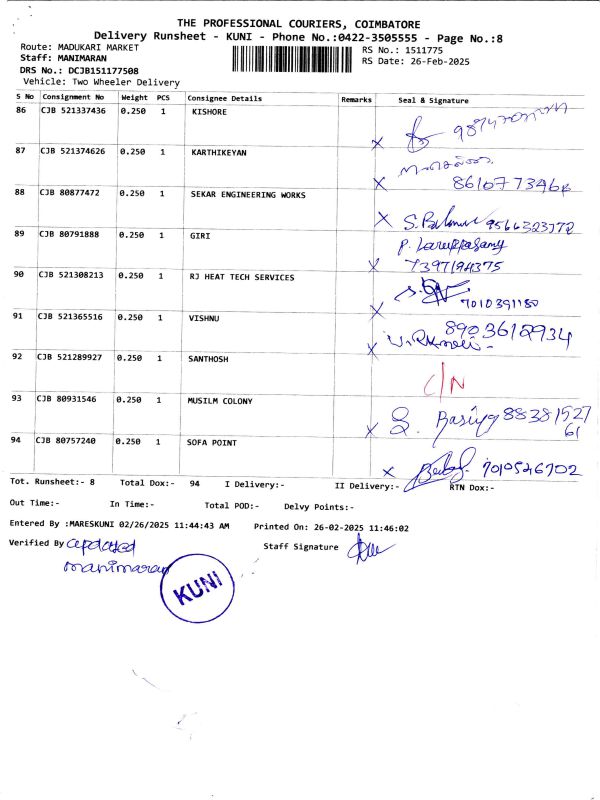 THE PROFESSIONAL COURIERS, COIMBATORE
Delivery Runsheet - KUNI - Phone No.:0422-3505555 - Page No.:8
Route: MADUKARI MARKET
RS No.: 1511775
Staff: MANIMARAN
RS Date: 26-Feb-2025
DRS No.: DCJB151177508
Vehicle: Two Wheeler Delivery
S No Consignment No Weight PCS Consignee Details Remarks Seal & Signature
86 CJB 521337436 0.250 1 KISHORE
X
87 CJB 521374626 0.250 1 KARTHIKEYAN
X
88 CJB 80877472 0.250 1 SEKAR ENGINEERING WORKS
X 9566323772
89 CJB 80791888 0.250 1 GIRI
P. Karuppasamy
X 7397194375
90 CJB 521308213 0.250 1 RJ HEAT TECH SERVICES
X 7010391180
91 CJB 521365516 0.250 1 VISHNU
8903612934
X
92 CJB 521289927 0.250 1 SANTHOSH
C/N
93 CJB 80931546 0.250 1 MUSILM COLONY
X 8838152761
94 CJB 80757240 0.250 1 SOFA POINT
X 7010526702
Tot. Runsheet:- 8 Total Dox:- 94 I Delivery:- II Delivery:- RTN Dox:-
Out Time:- In Time:- Total POD:- Delvy Points:-
Entered By :MARESKUNI 02/26/2025 11:44:43 AM Printed On: 26-02-2025 11:46:02
Verified By Staff Signature
manimaran
KUNI